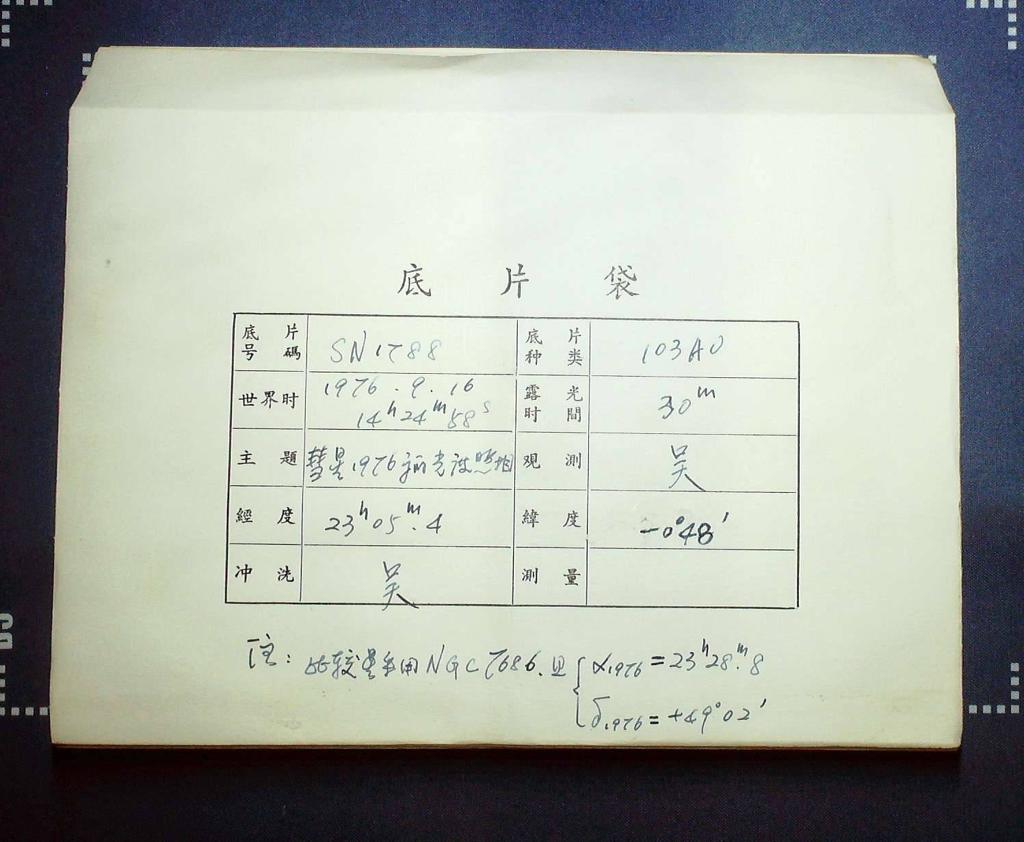 底 片 袋
底片号碼 SN1788 底片种类 103AO
世界时 1976.9.16 14h24m58s 露光时間 30m
主題 彗星1976 光度照相 观測 吴
經度 23h05m.4 緯度 -0°48′
冲洗 吴 測量
注: 比较星采用NGC7686.
α1976=23h28m.8
δ1976=+49°02′